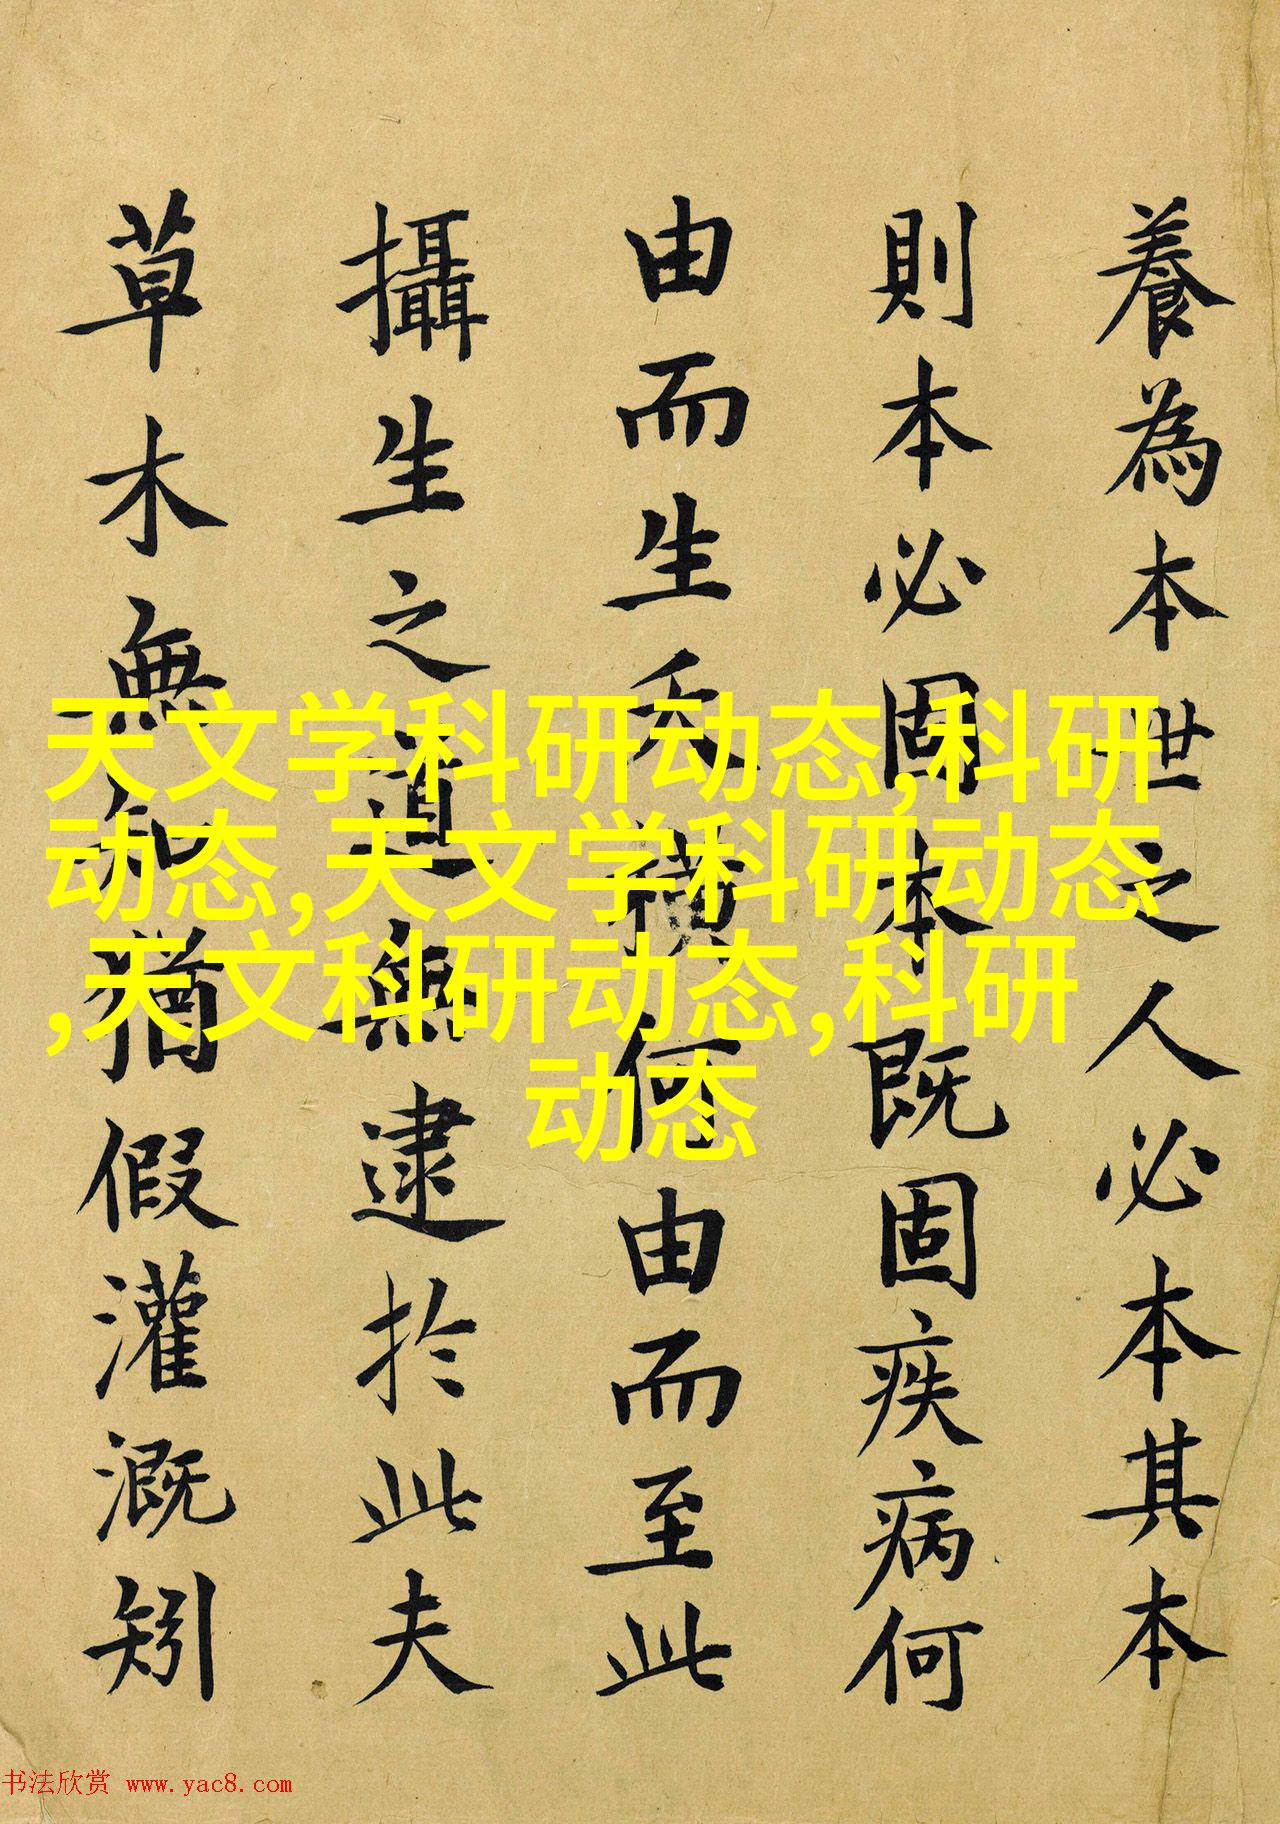 養為本世之人必本其本
則本必固本既固疾病何
由而生夭橫何由而至此
攝生之道無逮於此夫
草木無知猶假灌溉矧
天文学科研动态,科研
动态,天文学科研动态
,天文科研动态,科研
动态
书法欣赏 www.yac8.com